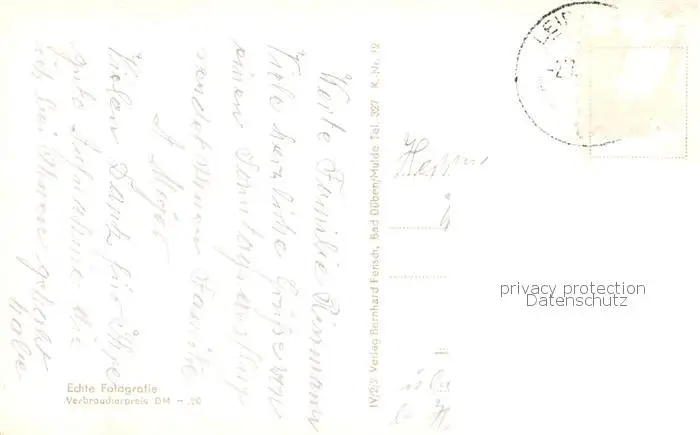 Werte Familie
Viele herzliche Grüße von
einen Sonntagsausflug
sendet Ihnen Familie
Vielen Dank für Ihre
gute Aufnahme die
ich bei Ihnen gehabt
habe
Echte Fotografie
Verbraucherpreis DM -.20
IV/2/2 Verlag Bernhard Fensch, Bad Düben/Mulde Tel. 327 K.Nr. 12
LEIP
Herrn
privacy protection
Datenschutz